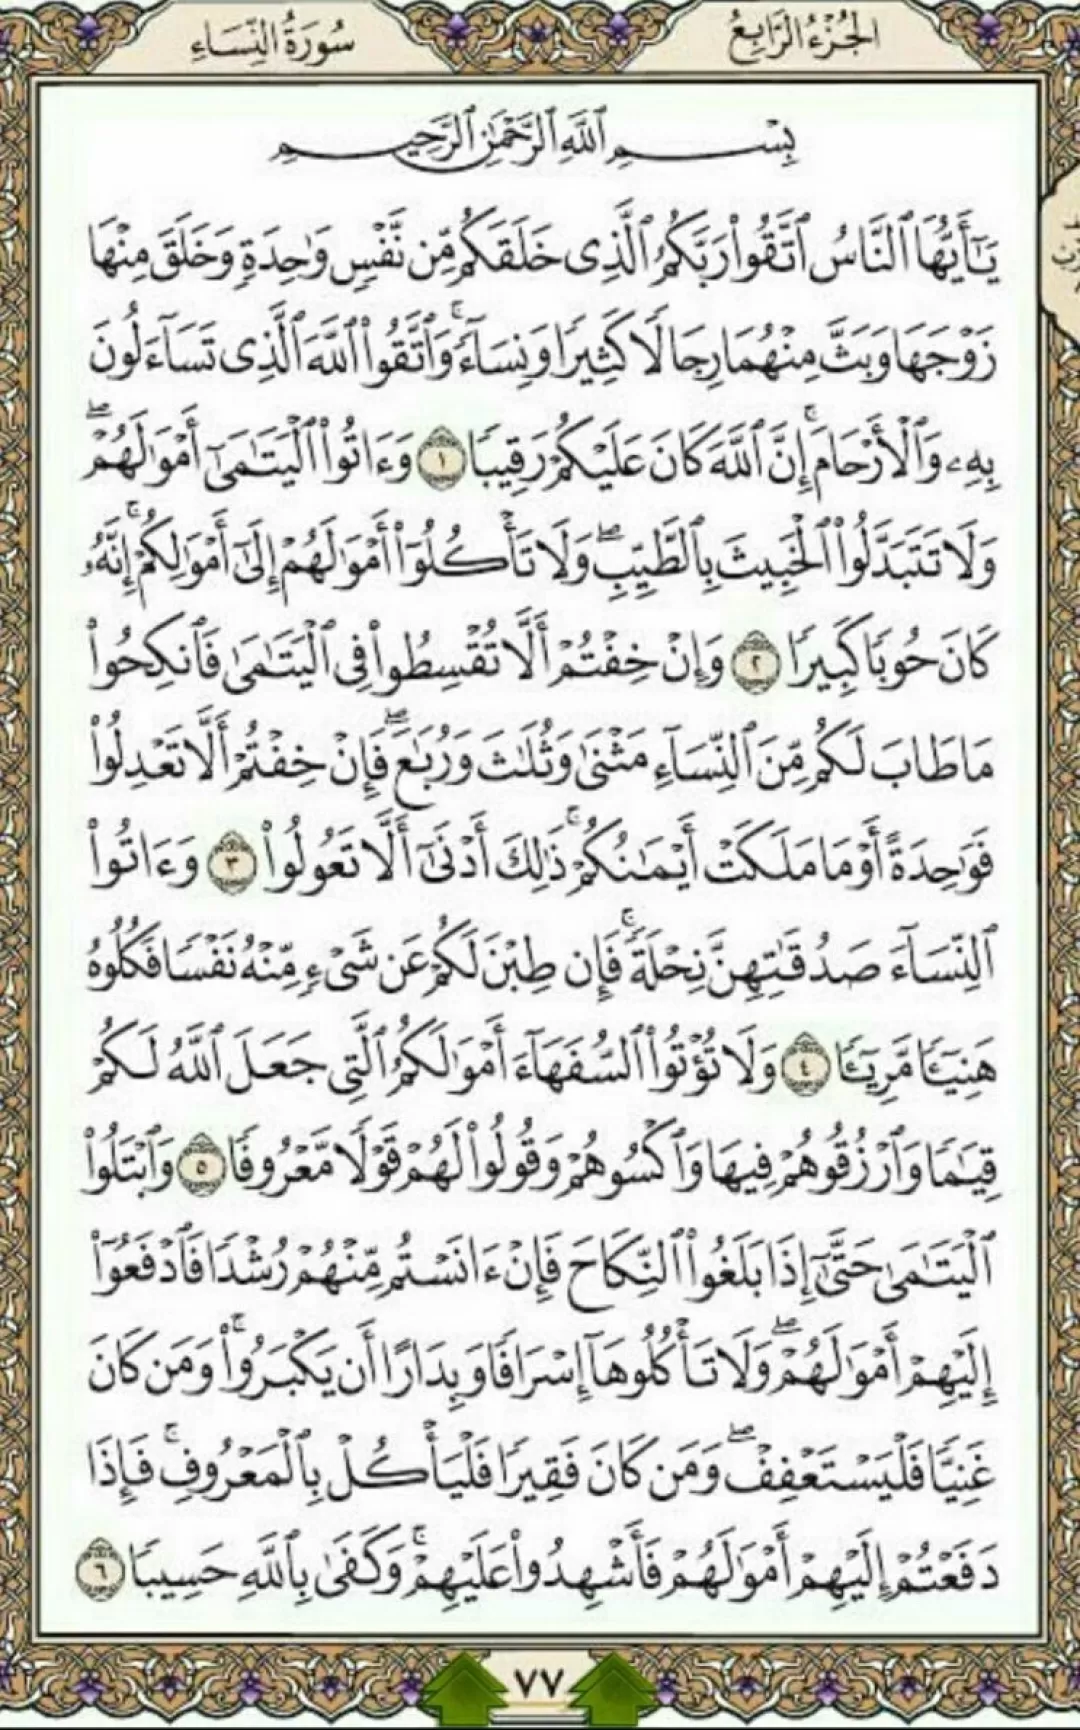 الجُزْءُ الرَّابِعُ
سُورَةُ النِّسَاءِ
بِسْمِ ٱللَّهِ ٱلرَّحْمَٰنِ ٱلرَّحِيمِ
يَٰٓأَيُّهَا ٱلنَّاسُ ٱتَّقُوا۟ رَبَّكُمُ ٱلَّذِى خَلَقَكُم مِّن نَّفْسٍ وَٰحِدَةٍ وَخَلَقَ مِنْهَا
زَوْجَهَا وَبَثَّ مِنْهُمَا رِجَالًا كَثِيرًا وَنِسَآءً ۚ وَٱتَّقُوا۟ ٱللَّهَ ٱلَّذِى تَسَآءَلُونَ
بِهِۦ وَٱلْأَرْحَامَ ۚ إِنَّ ٱللَّهَ كَانَ عَلَيْكُمْ رَقِيبًا ١ وَءَاتُوا۟ ٱلْيَتَٰمَىٰٓ أَمْوَٰلَهُمْ ۖ
وَلَا تَتَبَدَّلُوا۟ ٱلْخَبِيثَ بِٱلطَّيِّبِ ۖ وَلَا تَأْكُلُوٓا۟ أَمْوَٰلَهُمْ إِلَىٰٓ أَمْوَٰلِكُمْ ۚ إِنَّهُۥ
كَانَ حُوبًا كَبِيرًا ٢ وَإِنْ خِفْتُمْ أَلَّا تُقْسِطُوا۟ فِى ٱلْيَتَٰمَىٰ فَٱنكِحُوا۟
مَا طَابَ لَكُم مِّنَ ٱلنِّسَآءِ مَثْنَىٰ وَثُلَٰثَ وَرُبَٰعَ ۖ فَإِنْ خِفْتُمْ أَلَّا تَعْدِلُوا۟
فَوَٰحِدَةً أَوْ مَا مَلَكَتْ أَيْمَٰنُكُمْ ۚ ذَٰلِكَ أَدْنَىٰٓ أَلَّا تَعُولُوا۟ ٣ وَءَاتُوا۟
ٱلنِّسَآءَ صَدُقَٰتِهِنَّ نِحْلَةً ۚ فَإِن طِبْنَ لَكُمْ عَن شَىْءٍ مِّنْهُ نَفْسًا فَكُلُوهُ
هَنِيٓـًٔا مَّرِيٓـًٔا ٤ وَلَا تُؤْتُوا۟ ٱلسُّفَهَآءَ أَمْوَٰلَكُمُ ٱلَّتِى جَعَلَ ٱللَّهُ لَكُمْ
قِيَٰمًا وَٱرْزُقُوهُمْ فِيهَا وَٱكْسُوهُمْ وَقُولُوا۟ لَهُمْ قَوْلًا مَّعْرُوفًا ٥ وَٱبْتَلُوا۟
ٱلْيَتَٰمَىٰ حَتَّىٰٓ إِذَا بَلَغُوا۟ ٱلنِّكَاحَ فَإِنْ ءَانَسْتُم مِّنْهُمْ رُشْدًا فَٱدْفَعُوٓا۟
إِلَيْهِمْ أَمْوَٰلَهُمْ ۖ وَلَا تَأْكُلُوهَآ إِسْرَافًا وَبِدَارًا أَن يَكْبَرُوا۟ ۚ وَمَن كَانَ
غَنِيًّا فَلْيَسْتَعْفِفْ ۖ وَمَن كَانَ فَقِيرًا فَلْيَأْكُلْ بِٱلْمَعْرُوفِ ۚ فَإِذَا
دَفَعْتُمْ إِلَيْهِمْ أَمْوَٰلَهُمْ فَأَشْهِدُوا۟ عَلَيْهِمْ ۚ وَكَفَىٰ بِٱللَّهِ حَسِيبًا ٦
٧٧